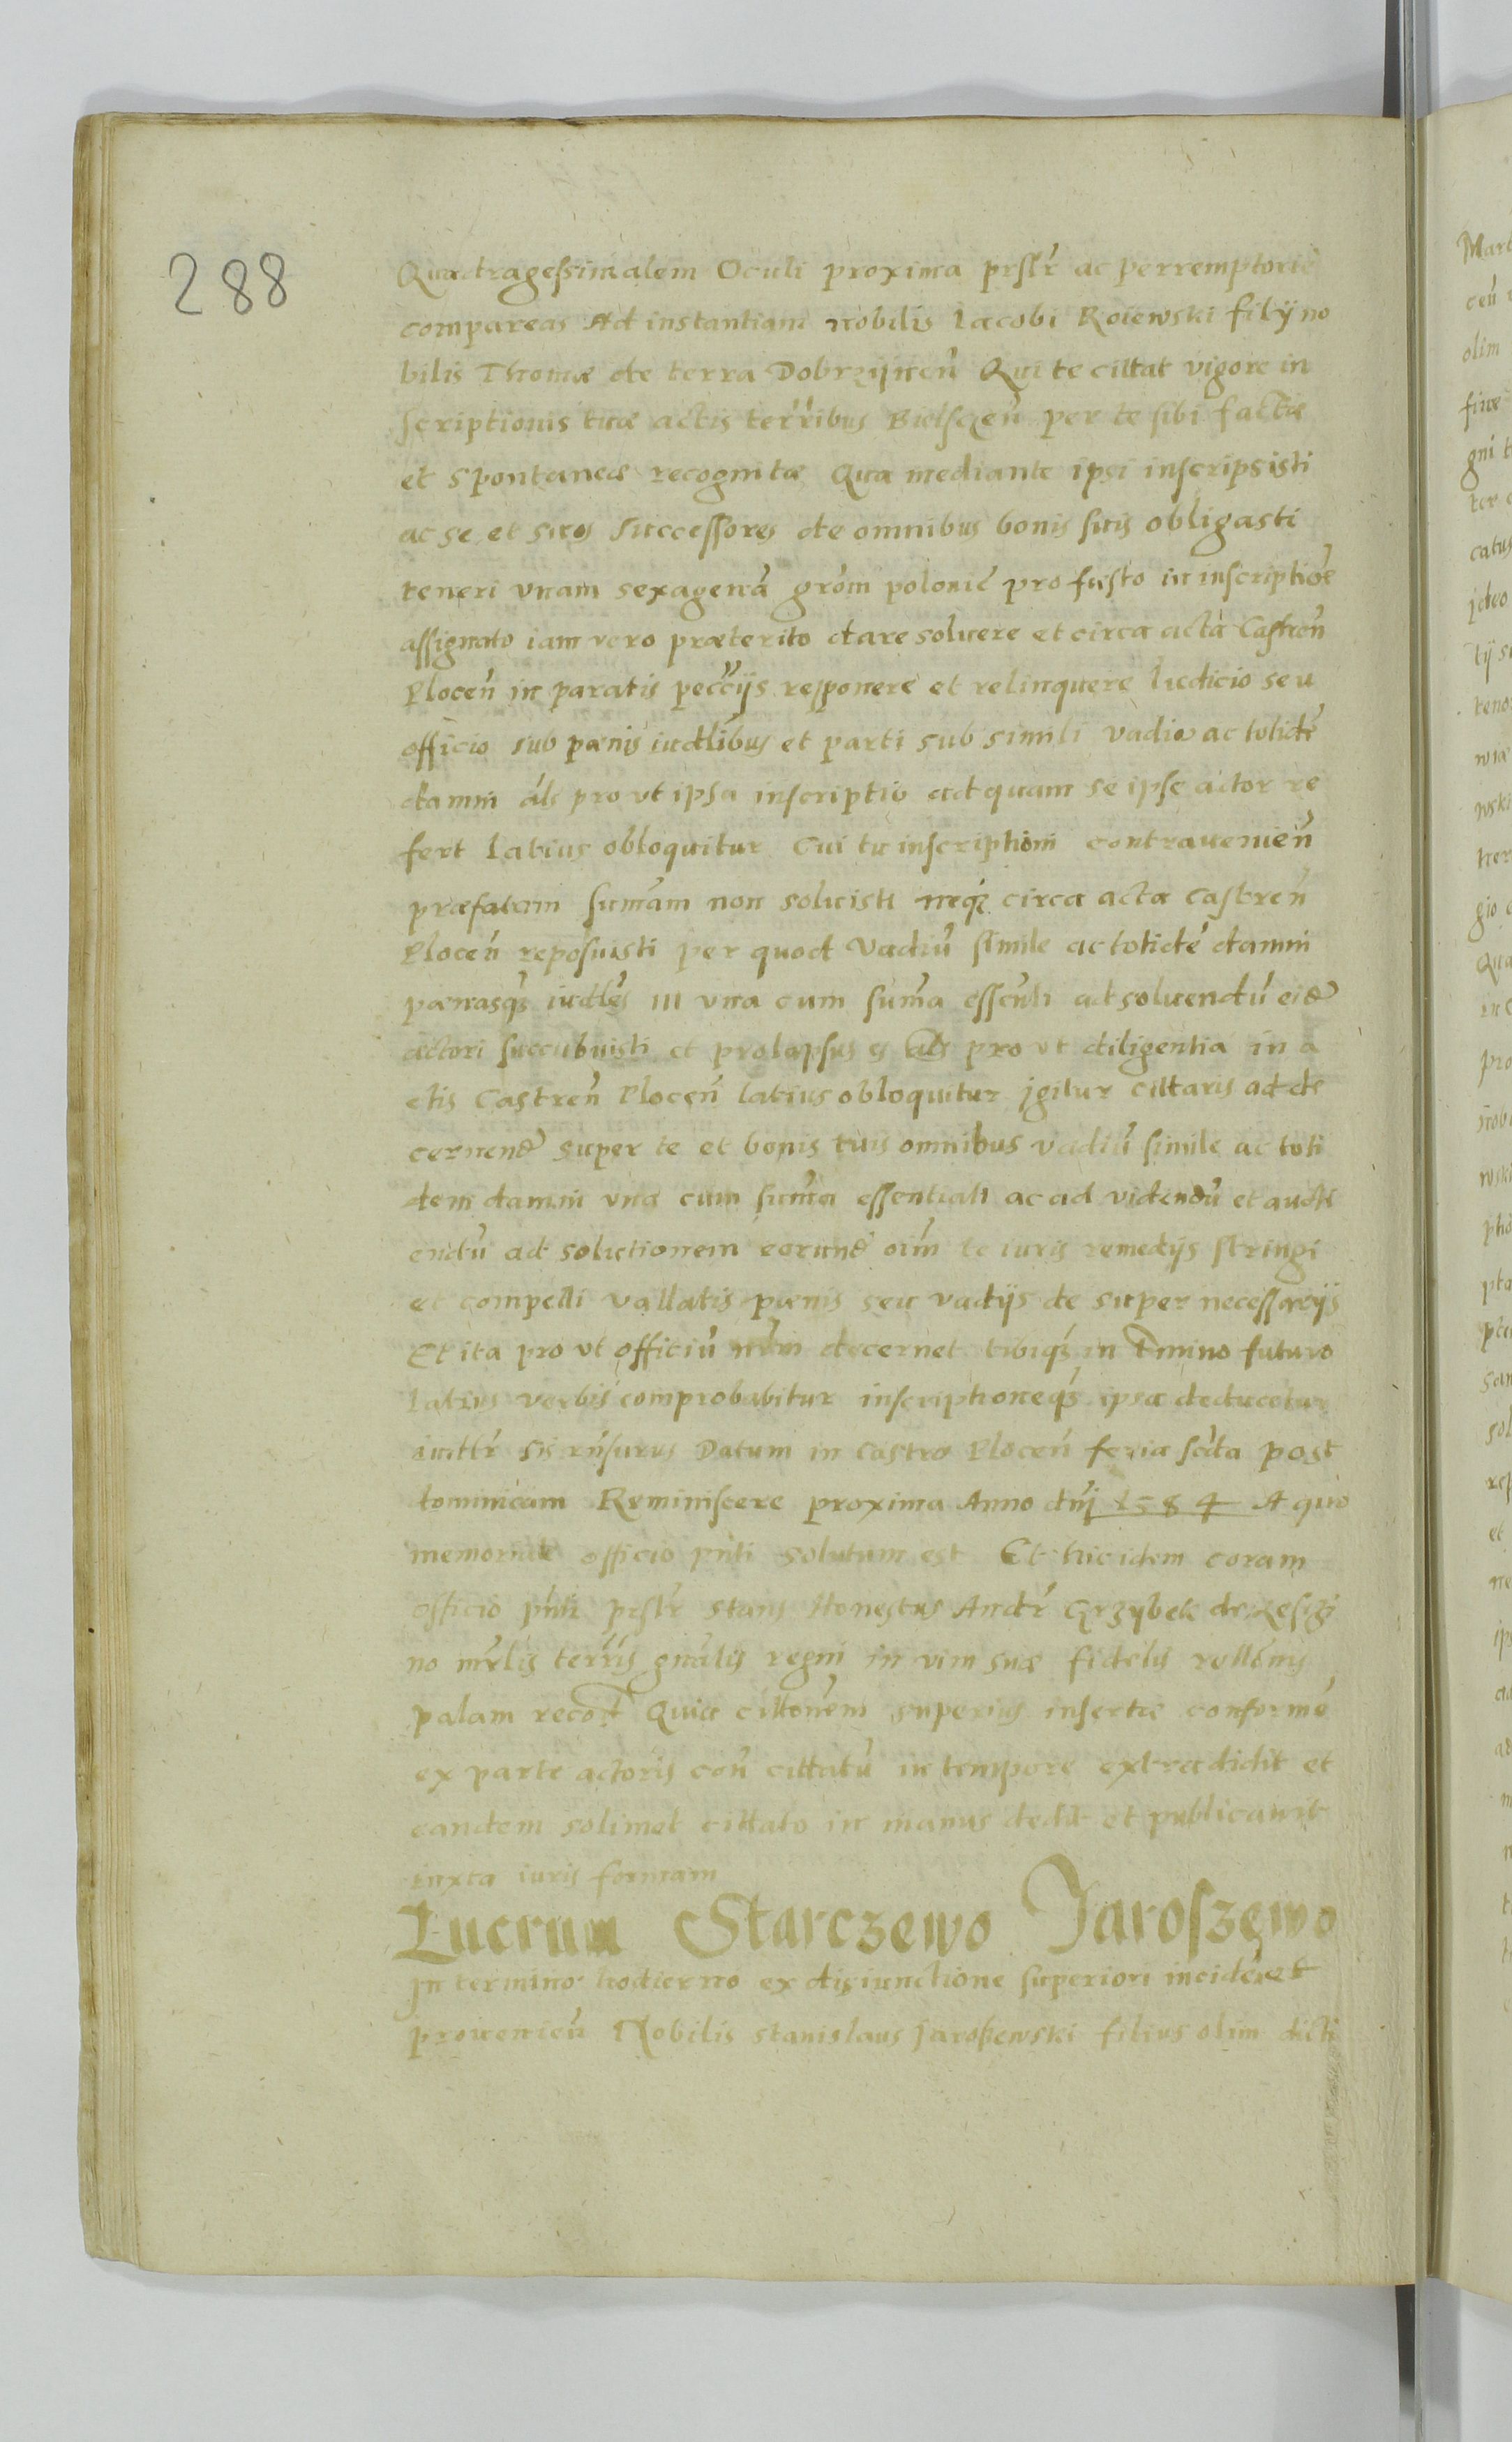 288
Quadragessimalem Oculi proxima prslr ac perremptorie
compareas Ad instantiam nobilis Iacobi Roiewski filÿ no
bilis Thomæ de terra Dobrzÿnen̄ Qui te cittat vigore in
scriptionis tuæ actis terr̄ibus Bielsczen̄ per te sibi factæ
et spontaneæ recognitæ Qua mediante ipsi inscripsisti
ac se et suos successores de omnibus bonis suis obligasti
teneri vnam sexagenā grom̄ polonic̄ pro festo in inscriptiōe
assignato iam vero præterito dare soluere et circa acta Castren̄
Plocen̄ in paratis pecc̄ijs reponere et relinquere Iudicio seu
officio sub pænis iudlibus et parti sub simili vadio ac totidē
damni āls pro vt ipsa inscriptio ad quam se ipse actor re
fert latius obloquitur Cui tu inscriptioni contrauenien̄
præfatam sum̄am non soluisti neqз circa acta Castren̄
Plocen̄ reposuisti per quod Vadiū simile ac totidē damni
pænasqз iudles III vna cum sum̄a essen̄li ad soluendū eid
actori succubuisti et prolapsus es als pro vt diligentia in a
ctis Castren̄ Plocen̄ latius obloquitur jgitur cittaris ad de
cernend super te et bonis tuis omnibus vadiū simile ac toti
dem damni vna cum sum̄a essentiali ac ad videndū et audi
endū ad solutionem eorund oim̄ te iuris remedijs stringi
et compelli vallatis pænis seu vadijs de super necessarijs
Et ita pro vt officiū nr̄m decernet tibiqз in Tmino futuro
latius verbis comprobabitur inscriptioneqз ipsa deducetur
iudlr sis rn̄surus Datum in Castro Plocen̄ feria scd̄a post
dominicam Reminiscere proxima Anno dn̄j 1584 A quo
memoriale officio pn̄ti solutum est Et hic idem coram
officio pn̄ti prslr stans Honestus Andr̄ Grzÿbek de
no mr̄lis terr̄is gn̄alis regni in vim suæ fidelis rellōnis
palam recod Quia cittōnem superius insertæ conformē
ex parte actoris con̄ cittatū in tempore extradidit et
eandem solimet cittato in manus dedit et publicauit
iuxta iuris formam
Lucrum Starczewo Jaroszewo
In termino hodierno ex disiunctione superiori inciden̄ et
prouenien̄ Nobilis stanislaus Jaroszewski filius olim dicti